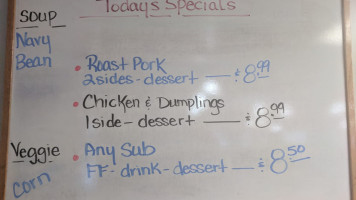 Todays Specials
SOUP
Navy
Bean
• Roast Pork
2sides-dessert — $8.99
• Chicken & Dumplings
1side-dessert — $8.99
Veggie
Corn
• Any Sub
FF-drink-dessert — $8.50